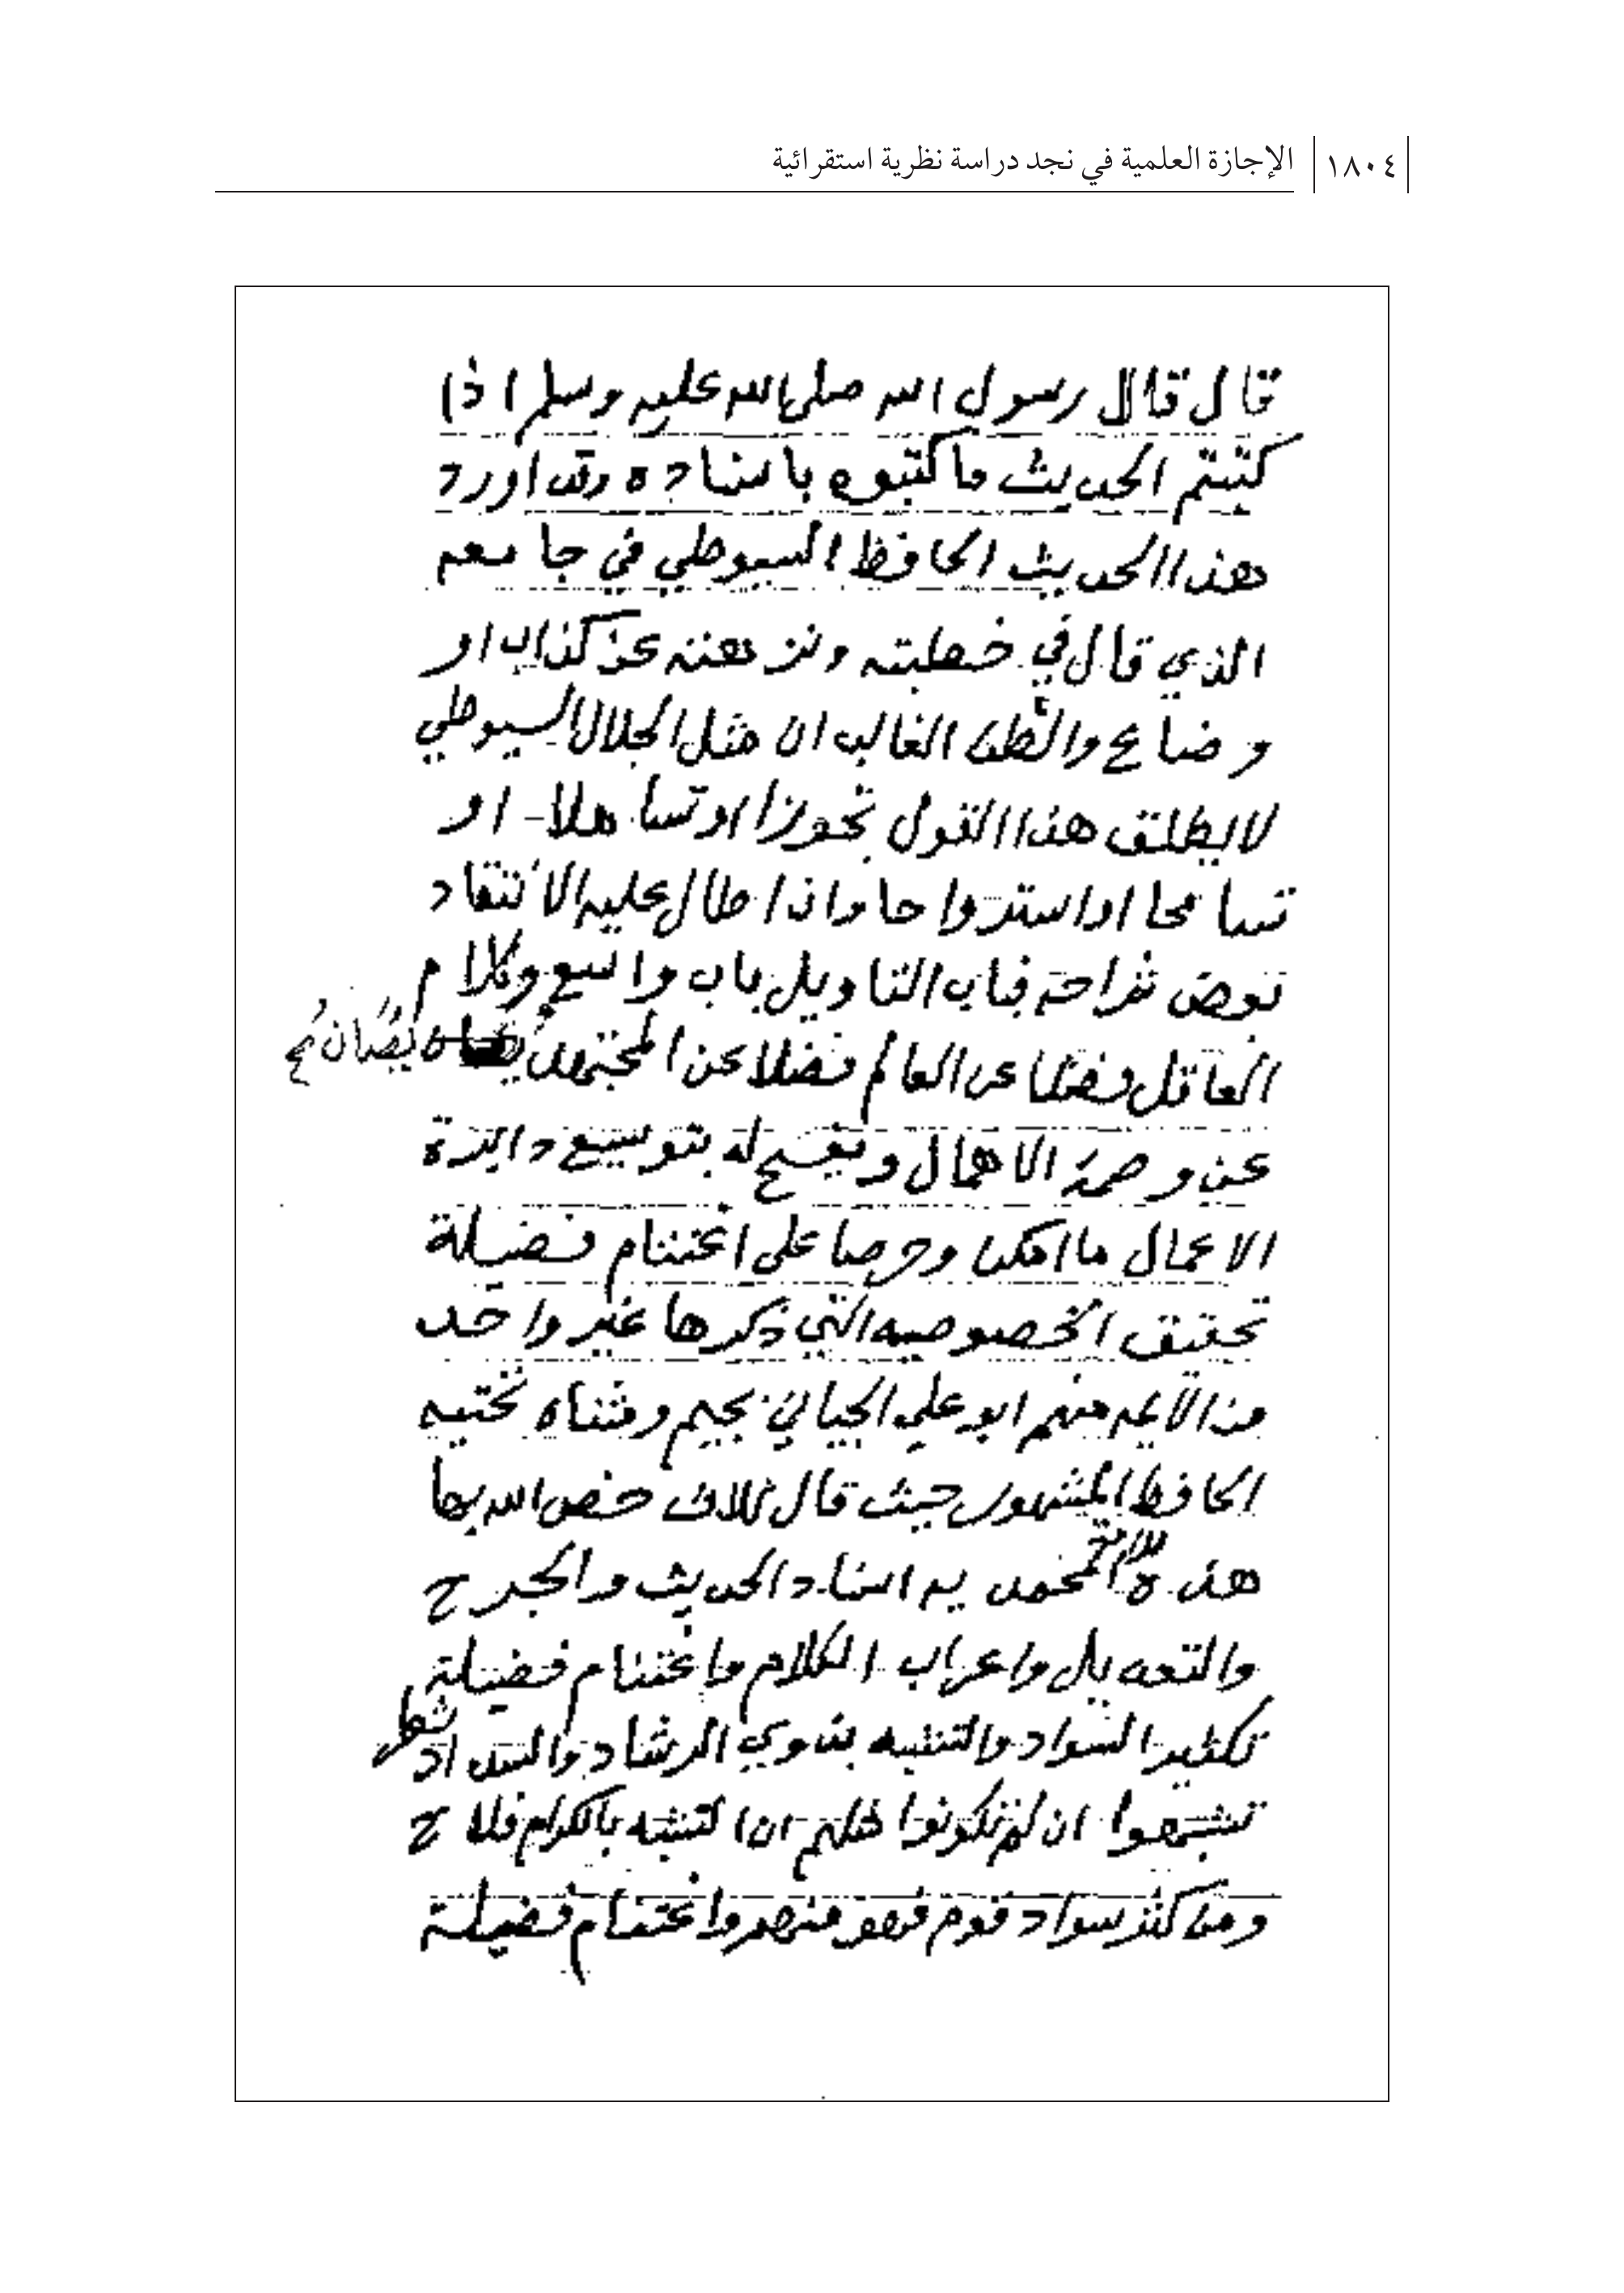 ١٨٠٤ الإجازة العلمية في نجد دراسة نظرية استقرائية
قال قال رسول الله صلى الله عليه وسلم اذا
كتبتم الحديث فاكتبوه باسناده وقد اورد
هذا الحديث الحافظ السيوطي في جامعه
الذي قال في خطبته ونزهته عن كذاب او
وضاع والظن الغالب ان مثل الجلال السيوطي
لا يطلق هذا القول تجوزا او تساهلا او
تسامحا او استرواحا واذا طال عليه الانتقاد
بوضع شراحه فباب التاويل باب واسع وكلام
العاقل فضلا عن العالم فضلا عن المجتهد يصان
عن وصمة الاهمال ويفسح له بتوسيع دايرة
الاعمال ما امكن وحرصا على اغتنام فضيلة
تحقيق الخصوصيه التي ذكرها غير واحد
من الايمه منهم ابو علي الجياني بجيم ومثناه تحتيه
الحافظ المشهور حيث قال ثلاث خص الله بها
هذه الامة المحمديه اسناد الحديث والجرح
والتعديل واعراب الكلام واغتنام فضيلة
تكثير السواد والتشبه بذوي الرشاد والسداد شعر
تشبهوا ان لم تكونوا مثلهم ان التشبه بالكرام فلاح
ومن كثر سواد قوم فهو منهم واغتنام فضيلة